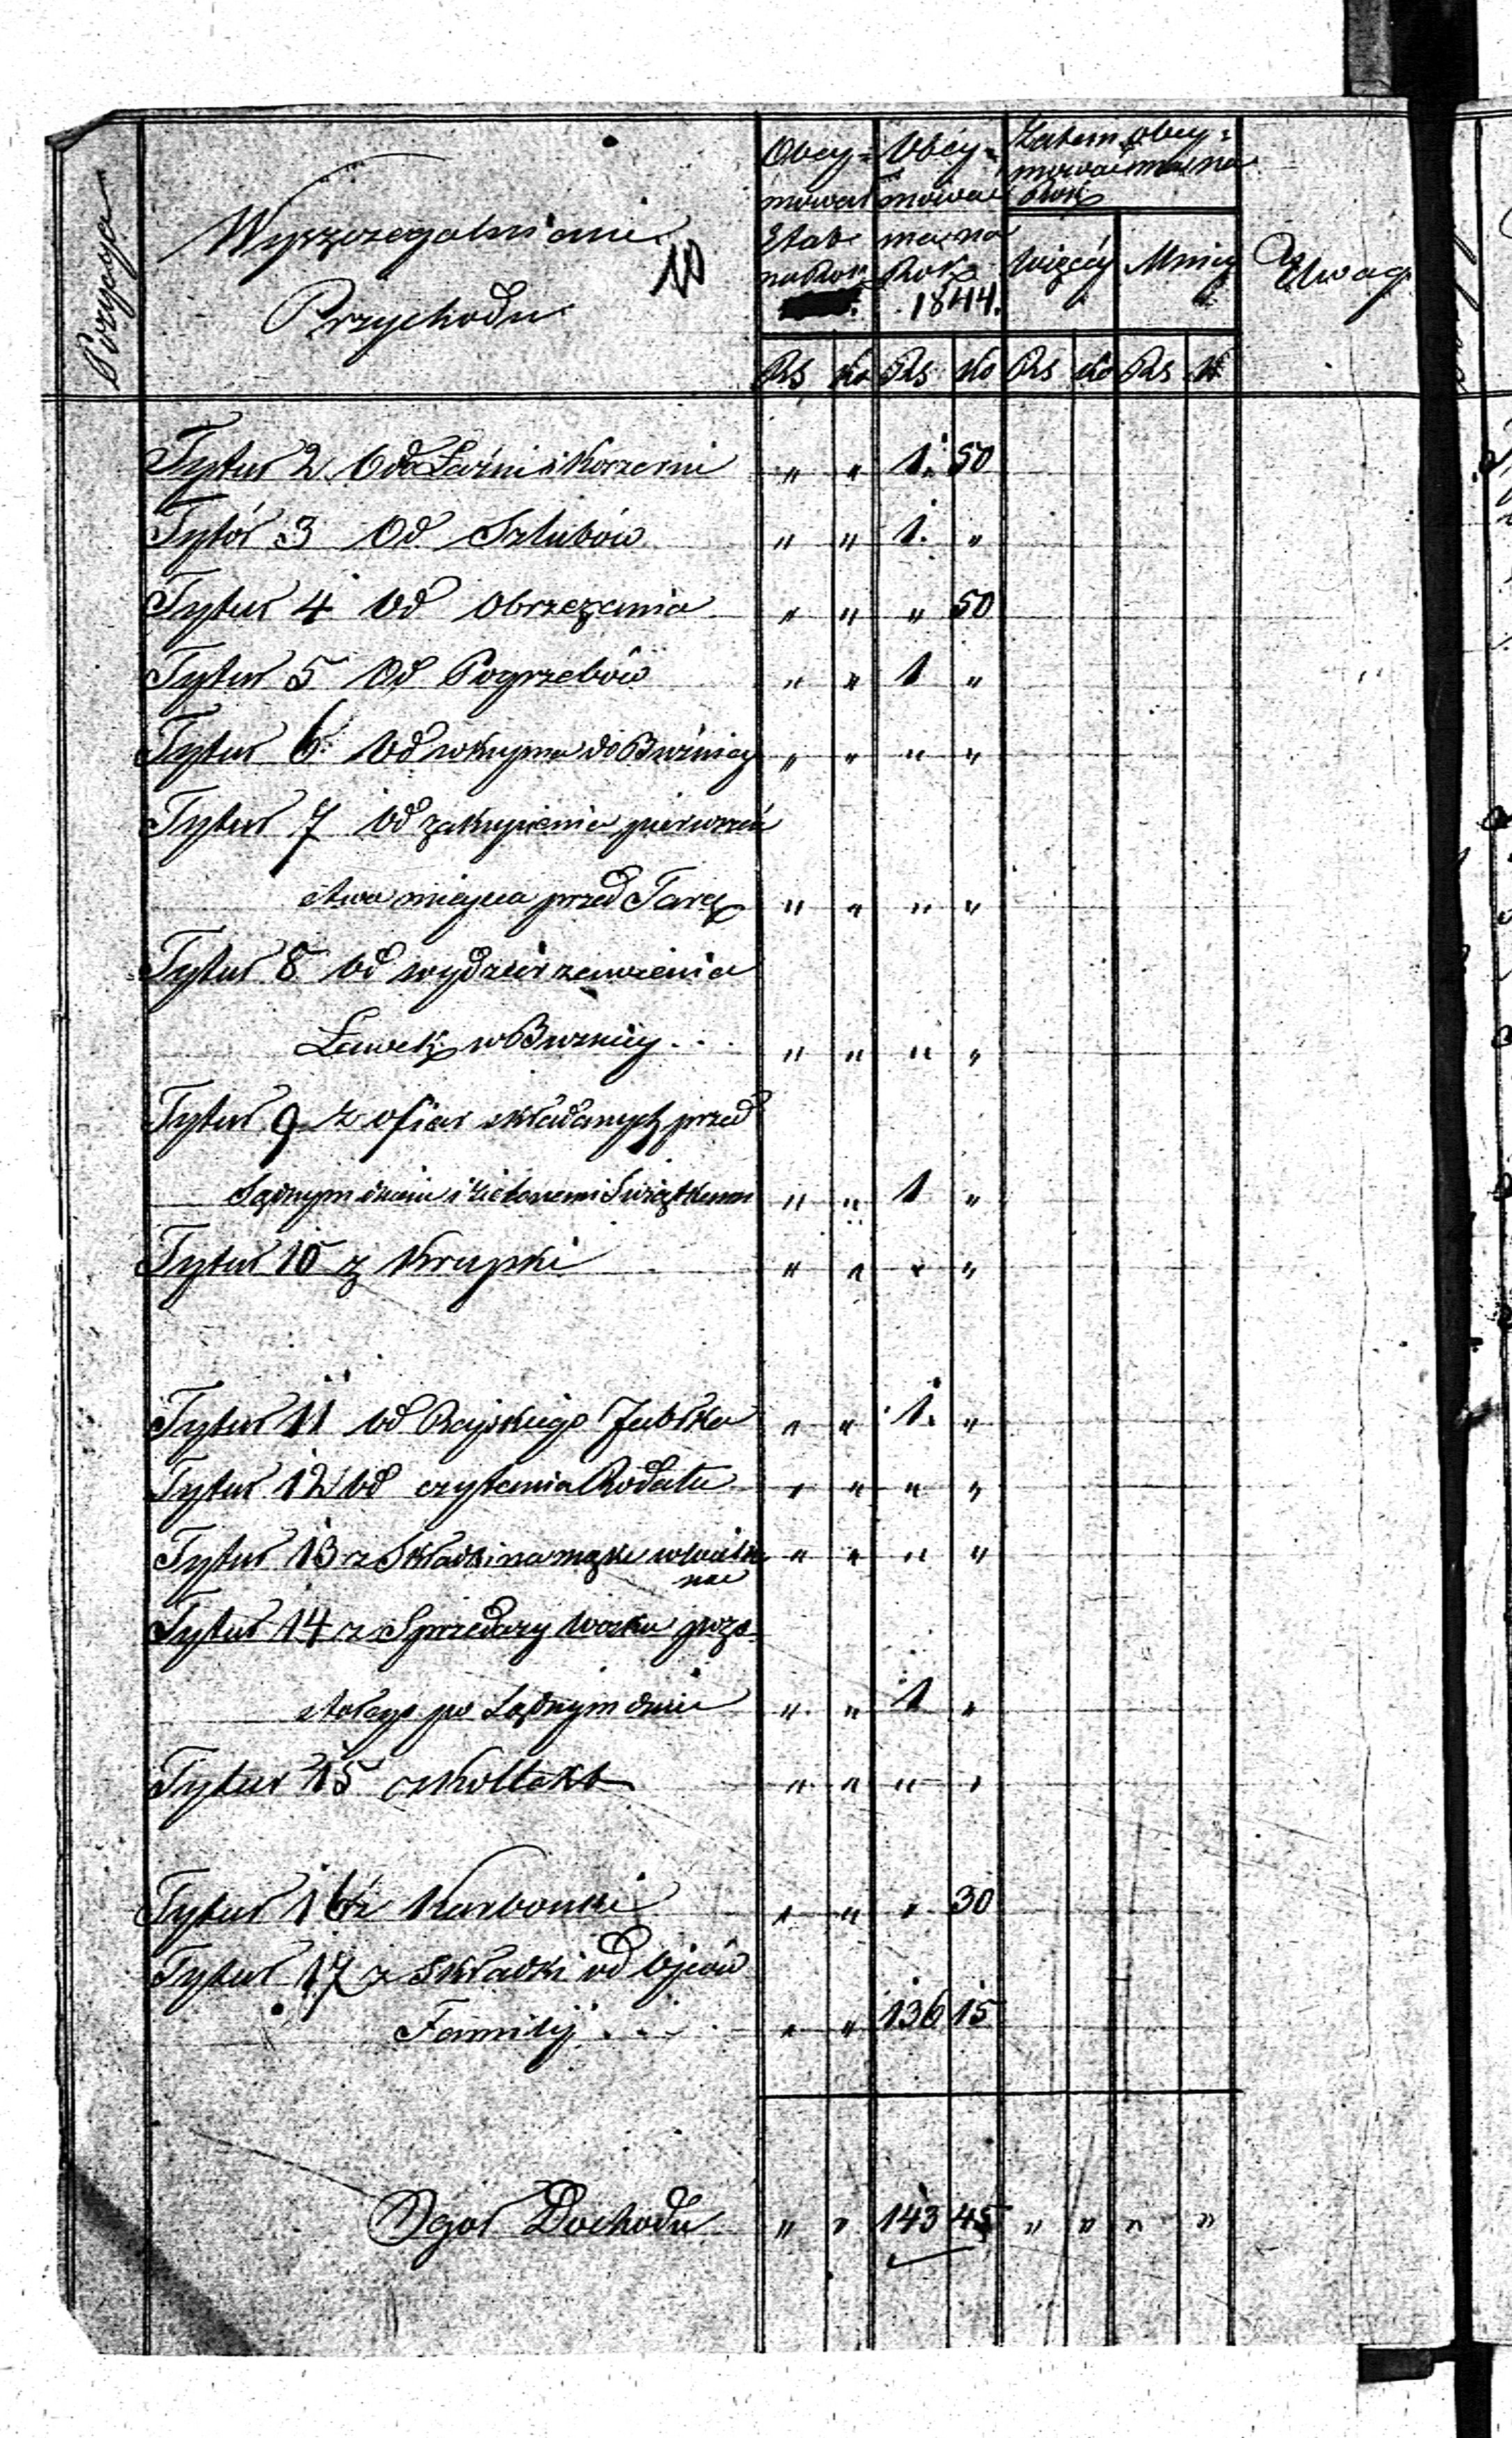 Pozycya
Wyszczególnienie
Przychodu
10
Obey=
mował
Etat
na Rok
Obey=
mować
ma na
Rok
1844.
Zatem obey=
mować ma na
Rok
Więcéy
Mniéy
Uwagi
Rs ko Rs ko Rs ko Rs k
Tytuł 2 Od Łaźni i Korzenni " " 1. 50
Tytół 3 Od Szlubów " " 1. "
Tytuł 4 Od Obrzezania " " " 50
Tytuł 5 Od Pogrzebów " " 1 "
Tytuł 6 Od wkupna do Bużnicy " " " "
Tytuł 7 Od zakupienia pierwszeń
stwa miejsca przed Torą " " " "
Tytuł 8 Od wydzierżawienia
Ławek w Bużnicy " " " "
Tytuł 9 z ofiar składanych przed
Sądnym dniem i Zielonemi Świątkami " " 1 "
Tytuł 10 z Krupki " " " "
Tytuł 11 Od Rayskiego Jabłka " " 1. "
Tytuł 12 Od czytania Rodału " " " "
Tytuł 13 z Składki na mąkę " " " "
Tytuł 14 z Sprzedaży Wosku pozo=
stałego po Sądnym dniu " " 1 "
Tytuł 15 z Kollekt " " " "
Tytuł 16 z Karbonki " " " 30
Tytuł 17 z Składki od Ojców
Familij " " 136 15
Ogół Dochodu " " 143 45 " " " "